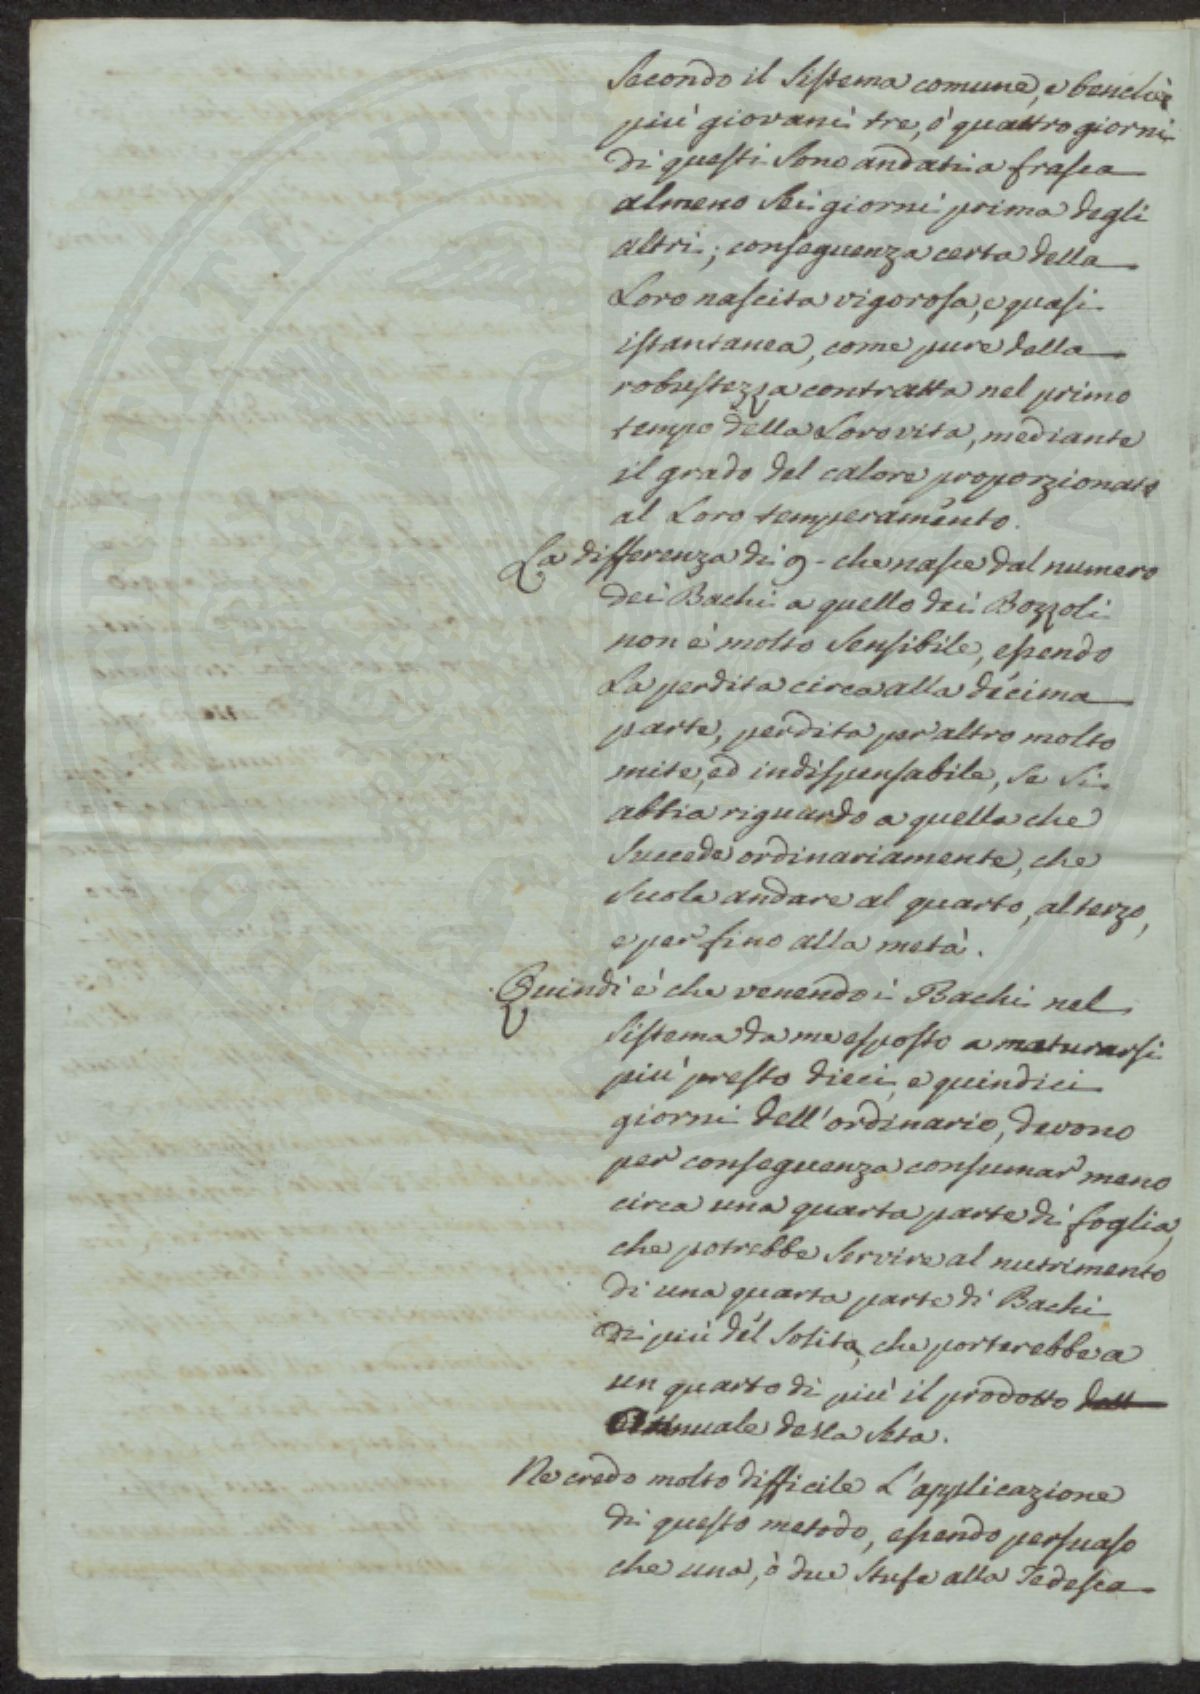 Secondo il Sistema comune, e benchè
più giovani tre, ò quattro giorni
di questi sono andati a frasca
almeno sei giorni prima degli
altri; conseguenza certa della
Loro nascita vigorosa, e quasi
istantanea, come pure della
robustezza contratta nel primo
tempo della Loro vita, mediante
il grado del calore proporzionato
al Loro temperamento.
La differenza di 9- che nasce dal numero
dei Bachi a quello dei Bozzoli
non è molto sensibile, essendo
La perdita circa alla decima
parte, perdita per altro molto
mite, ed indispensabile, se si
abbia riguardo a quella che
succede ordinariamente, che
suole andare al quarto, al terzo,
e per fino alla metà.
Quindi è che venendo i Bachi nel
Sistema da me esposto a maturarsi
più presto dieci, e quindici
giorni dell'ordinario, devono
per conseguenza consumar meno
circa una quarta parte di foglia,
che potrebbe servire al nutrimento
di una quarta parte di Bachi
di più del Solito, che porterebbe a
un quarto di più il prodotto dall
annuale della seta.
Ne credo molto difficile L'applicazione
di questo metodo, essendo persuaso
che una, ò due Stufe alla Tedesca